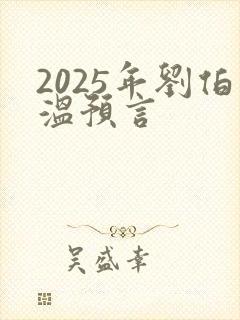 2025年劉伯
溫預言
吴盛幸